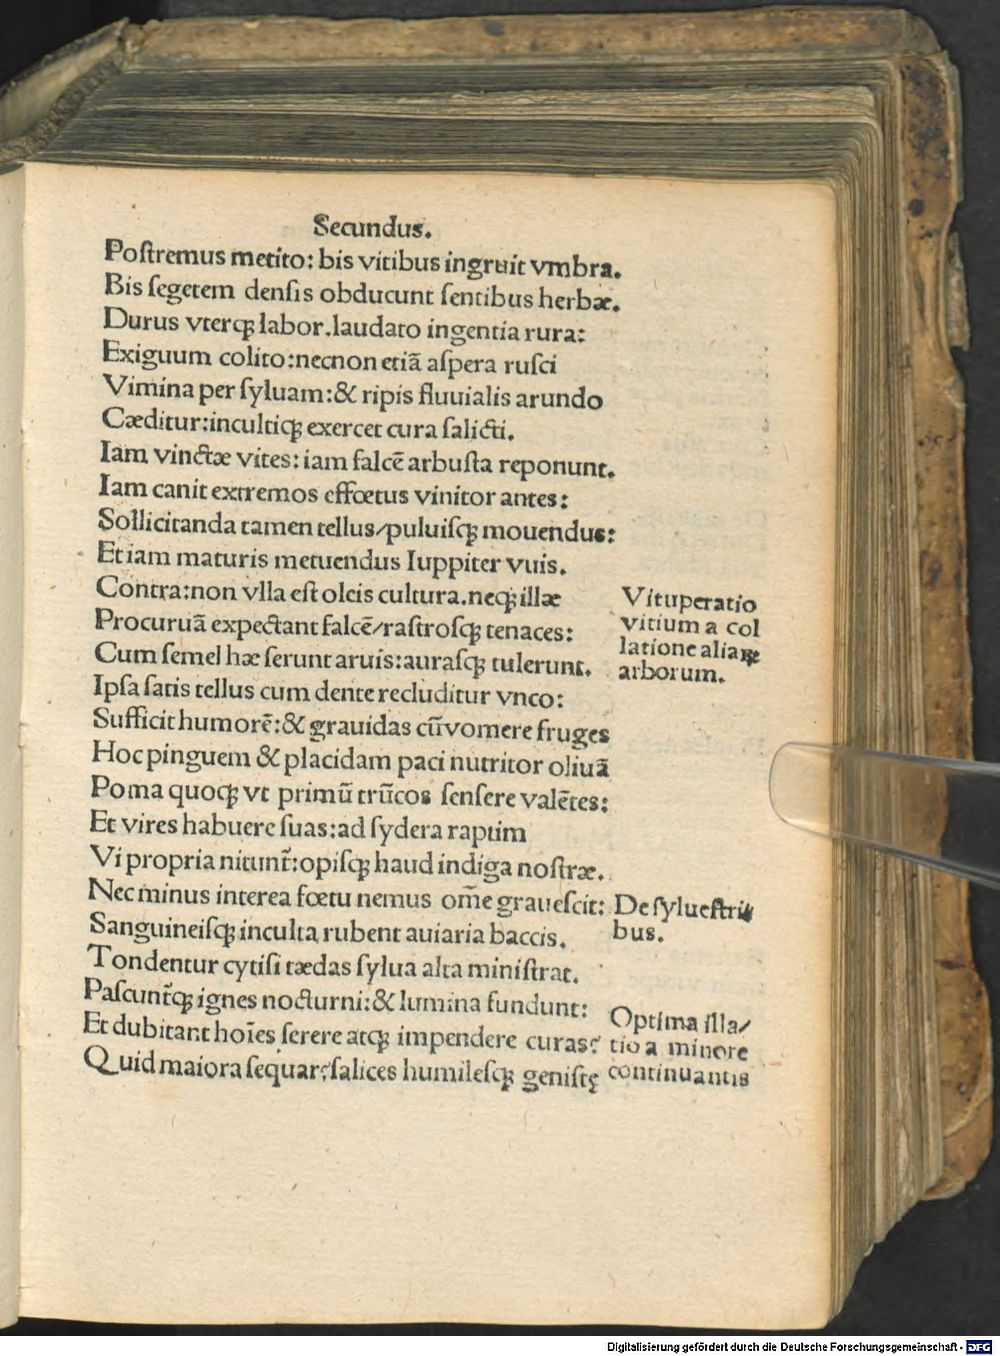 Secundus.
Postremus metito: bis vitibus ingruit vmbra.
Bis segetem densis obducunt sentibus herbæ.
Durus vterqꝫ labor. laudato ingentia rura:
Exiguum colito: necnon etiã aspera rusci
Vimina per syluam: & ripis fluuialis arundo
Cæditur: incultiqꝫ exercet cura salicti.
Iam vinctæ vites: iam falcẽ arbusta reponunt.
Iam canit extremos effœtus vinitor antes:
Sollicitanda tamen tellus/puluisqꝫ mouendus:
Et iam maturis metuendus Iuppiter vuis.
Contra: non vlla est oleis cultura. neqꝫ illæ
Procuruã expectant falcẽ/rastrosqꝫ tenaces:
Vituperatio
vitium a col
latione aliaꝝ
arborum.
Cum semel hæ serunt aruis: aurasqꝫ tulerunt.
Ipsa satis tellus cum dente recluditur vnco:
Sufficit humorẽ: & grauidas cũ vomere fruges
Hoc pinguem & placidam paci nutritor oliuã
Poma quoqꝫ vt primũ trũcos sensere valẽtes:
Et vires habuere suas: ad sydera raptim
Vi propria nitunt̃: opisqꝫ haud indiga nostræ.
Nec minus interea fœtu nemus om̃e grauescit:
De syluestri
bus.
Sanguineisqꝫ inculta rubent auiaria baccis.
Tondentur cytisi tædas sylua alta ministrat.
Pascunt̃qꝫ ignes nocturni: & lumina fundunt:
Et dubitant hoĩes serere atqꝫ impendere curas?
Quid maiora sequar? salices humilesqꝫ genistę
Optima illa/
tio a minore
continuantis
Digitalisierung gefördert durch die Deutsche Forschungsgemeinschaft - DFG